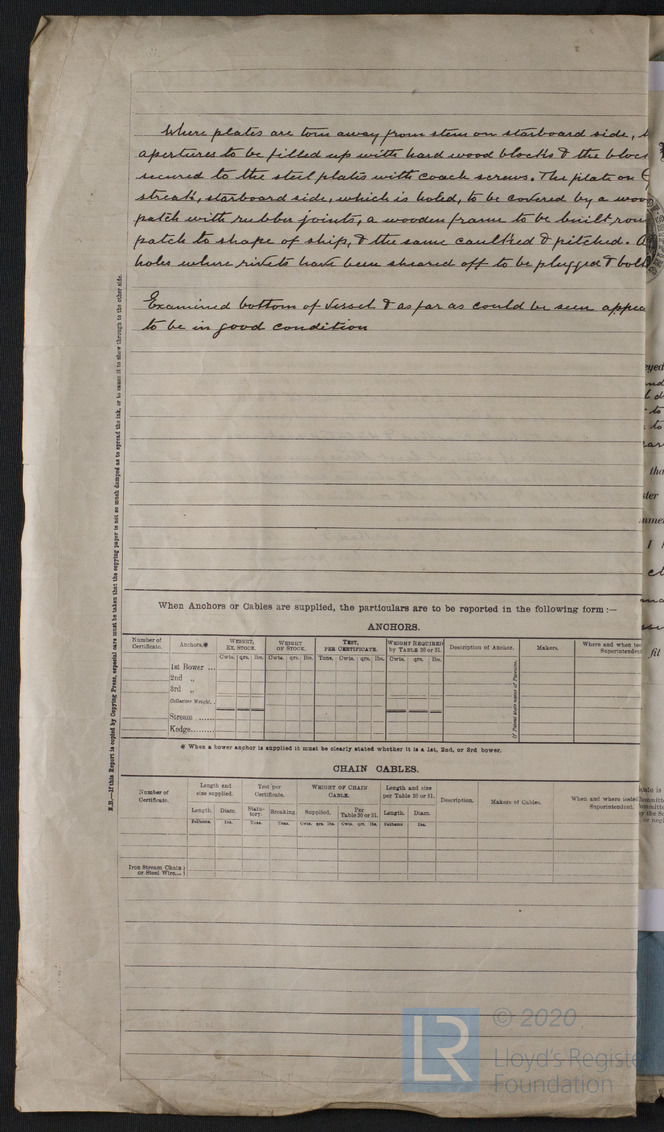 Where plates are torn away from stem on starboard side,
apertures to be filled up with hard wood blocks & the bloc
secured to the steel plates with coach screws. The plate on
streak, starboard side, which is holed, to be covered by a woo
patch with rubber joints, a wooden frame to be built rou
patch to shape of ship, & the same caulked & pitched.
holes where rivets have been sheared off to be plugged & bolt
Examined bottom of vessel & as far as could be seen appea
to be in good condition
N.B.—If this Report is copied by Copying Press, especial care must be taken that the copying paper is not so much damped as to spread the ink, or to cause it to show through to the other side.
When Anchors or Cables are supplied, the particulars are to be reported in the following form:—
ANCHORS.
Number of Certificate. Anchors.* WEIGHT, EX. STOCK. WEIGHT OF STOCK. TEST, PER CERTIFICATE. WEIGHT REQUIRED by TABLE 30 or 31. Description of Anchor. Makers. Where and when tes Superintendent
Cwts. qrs. lbs. Cwts. qrs. lbs. Tons. Cwts. qrs. lbs. Cwts. qrs. lbs.
1st Bower ...
2nd „
3rd „
Collective Weight.
Stream ......
Kedge........
If Patent state name of Patentee.
* When a bower anchor is supplied it must be clearly stated whether it is a 1st, 2nd, or 3rd bower.
CHAIN CABLES.
Number of Certificate. Length and size supplied. Test per Certificate. WEIGHT OF CHAIN CABLE. Length and size per Table 30 or 31. Description. Makers of Cables. When and where tested Superintendent.
Length. Diam. Statutory. Breaking. Supplied. Per Table 30 or 31. Length. Diam.
Fathoms. Ins. Tons. Tons. Cwts. qrs. lbs. Cwts. qrs. lbs. Fathoms. Ins.
Iron Stream Chain or Steel Wire...
LR © 2020
Lloyd's Registe
Foundation